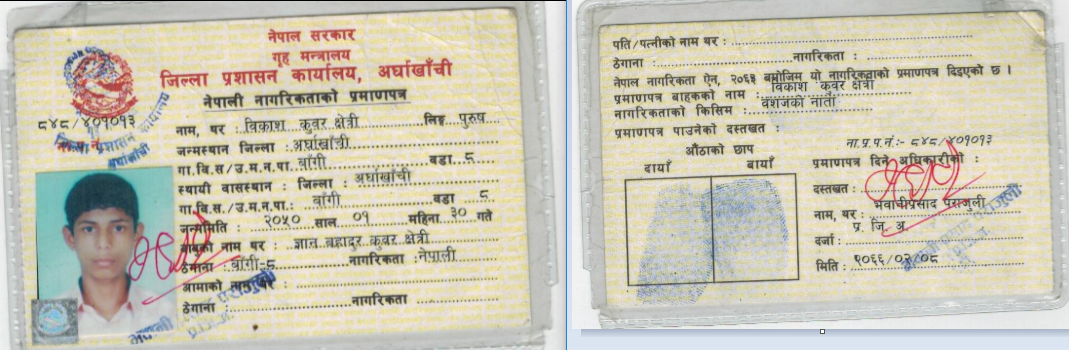 नेपाल सरकार
गृह मन्त्रालय
जिल्ला प्रशासन कार्यालय, अर्घाखाँची
नेपाली नागरिकताको प्रमाणपत्र
८४८/४०१०१३
नाम, थर : विकाश कुवर क्षेत्री लिङ्ग पुरुष
जन्मस्थान जिल्ला : अर्घाखाँची
गा.वि.स./उ.म.न.पा. बाँगी वडा ८
स्थायी वासस्थान : जिल्ला : अर्घाखाँची
गा.वि.स./उ.म.न.पा.: बाँगी वडा ८
जन्ममिति : २०५० साल ०१ महिना ३० गते
बाबुको नाम थर : ज्ञान बहादुर कुवर क्षेत्री
ठेगाना : बाँगी-८ नागरिकता : नेपाली
आमाको नाम थर :
ठेगाना : नागरिकता
पति/पत्नीको नाम थर :
ठेगाना : नागरिकता :
नेपाल नागरिकता ऐन, २०६३ बमोजिम यो नागरिकताको प्रमाणपत्र दिइएको छ ।
प्रमाणपत्र बाहकको नाम : विकाश कुवर क्षेत्री
नागरिकताको किसिम : वंशजको नाता
प्रमाणपत्र पाउनेको दस्तखत :
औंठाको छाप
दायाँ बायाँ
ना.प्र.प.नं.:- ८४८/४०१०१३
प्रमाणपत्र दिने अधिकारीको :
दस्तखत :
नाम, थर : भवानीप्रसाद पराजुली
दर्जा : प्र. जि. अ.
मिति : २०६६/०२/०८